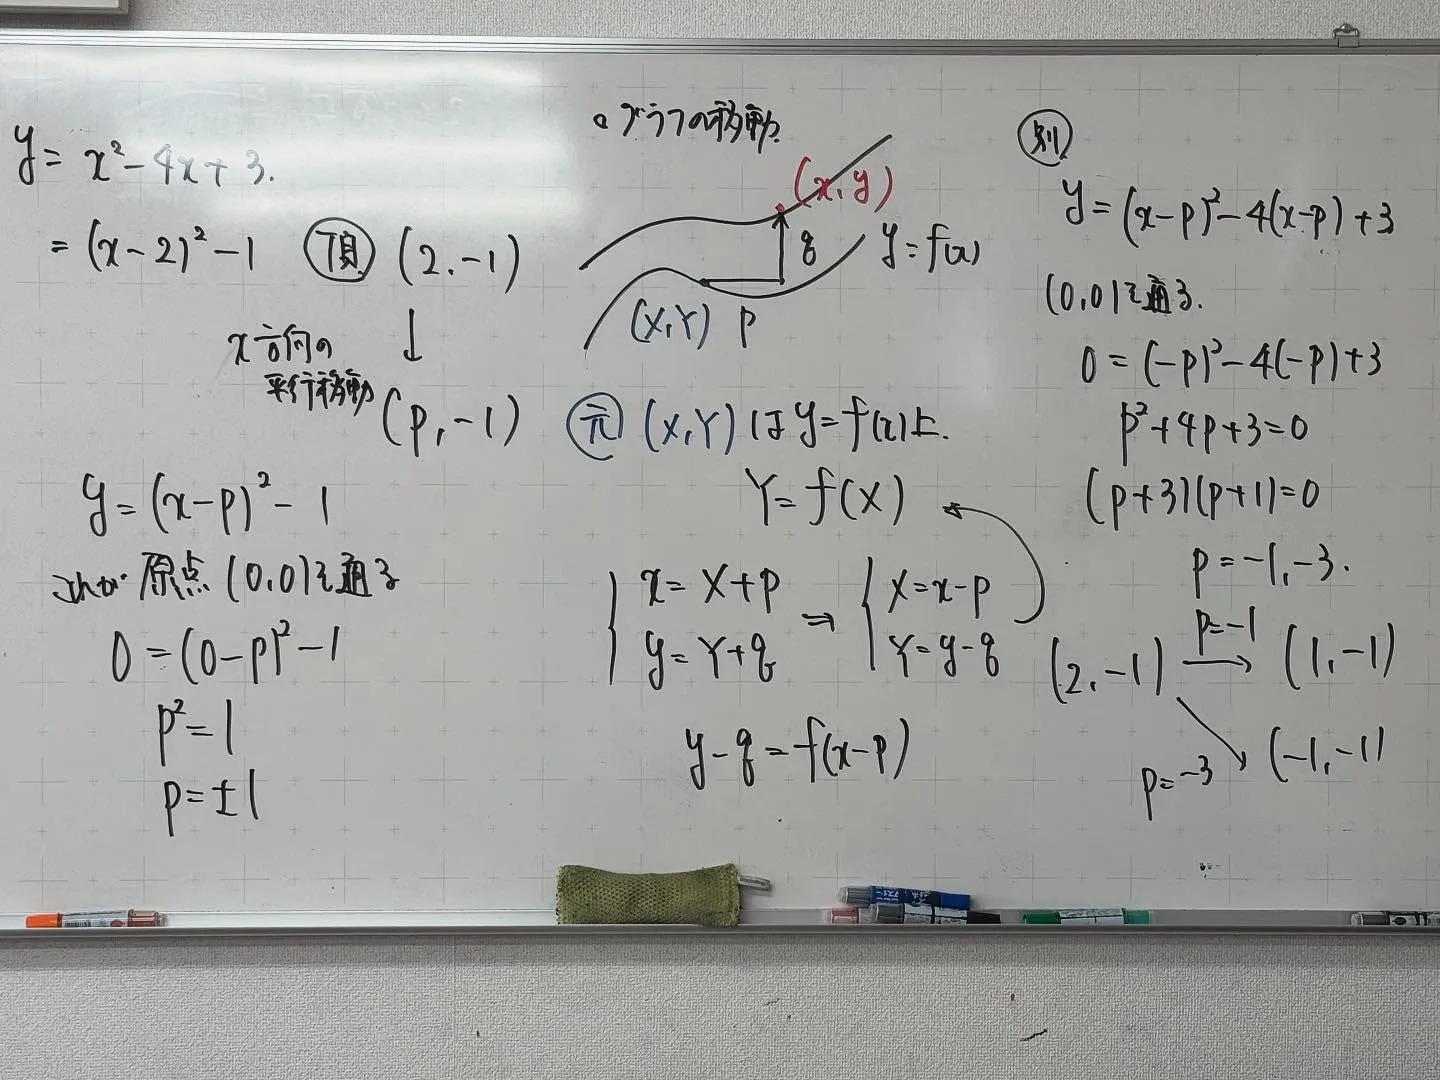 y = x² - 4x + 3.
= (x-2)² - 1 頂 (2, -1)
x方向の
平行移動
↓
(p, -1)
y = (x-p)² - 1
これが 原点 (0,0)を通る
0 = (0-p)² - 1
p² = 1
p = ±1
○グラフの移動
(x, y)
q
y = f(x)
(X, Y) p
元 (X, Y) は y = f(x)上.
Y = f(X)
{ x = X + p ⇒ { X = x - p
y = Y + q Y = y - q
y - q = f(x-p)
別
y = (x-p)² - 4(x-p) + 3
(0,0)を通る.
0 = (-p)² - 4(-p) + 3
p² + 4p + 3 = 0
(p+3)(p+1) = 0
p = -1, -3.
p = -1
(2, -1) → (1, -1)
p = -3 (-1, -1)